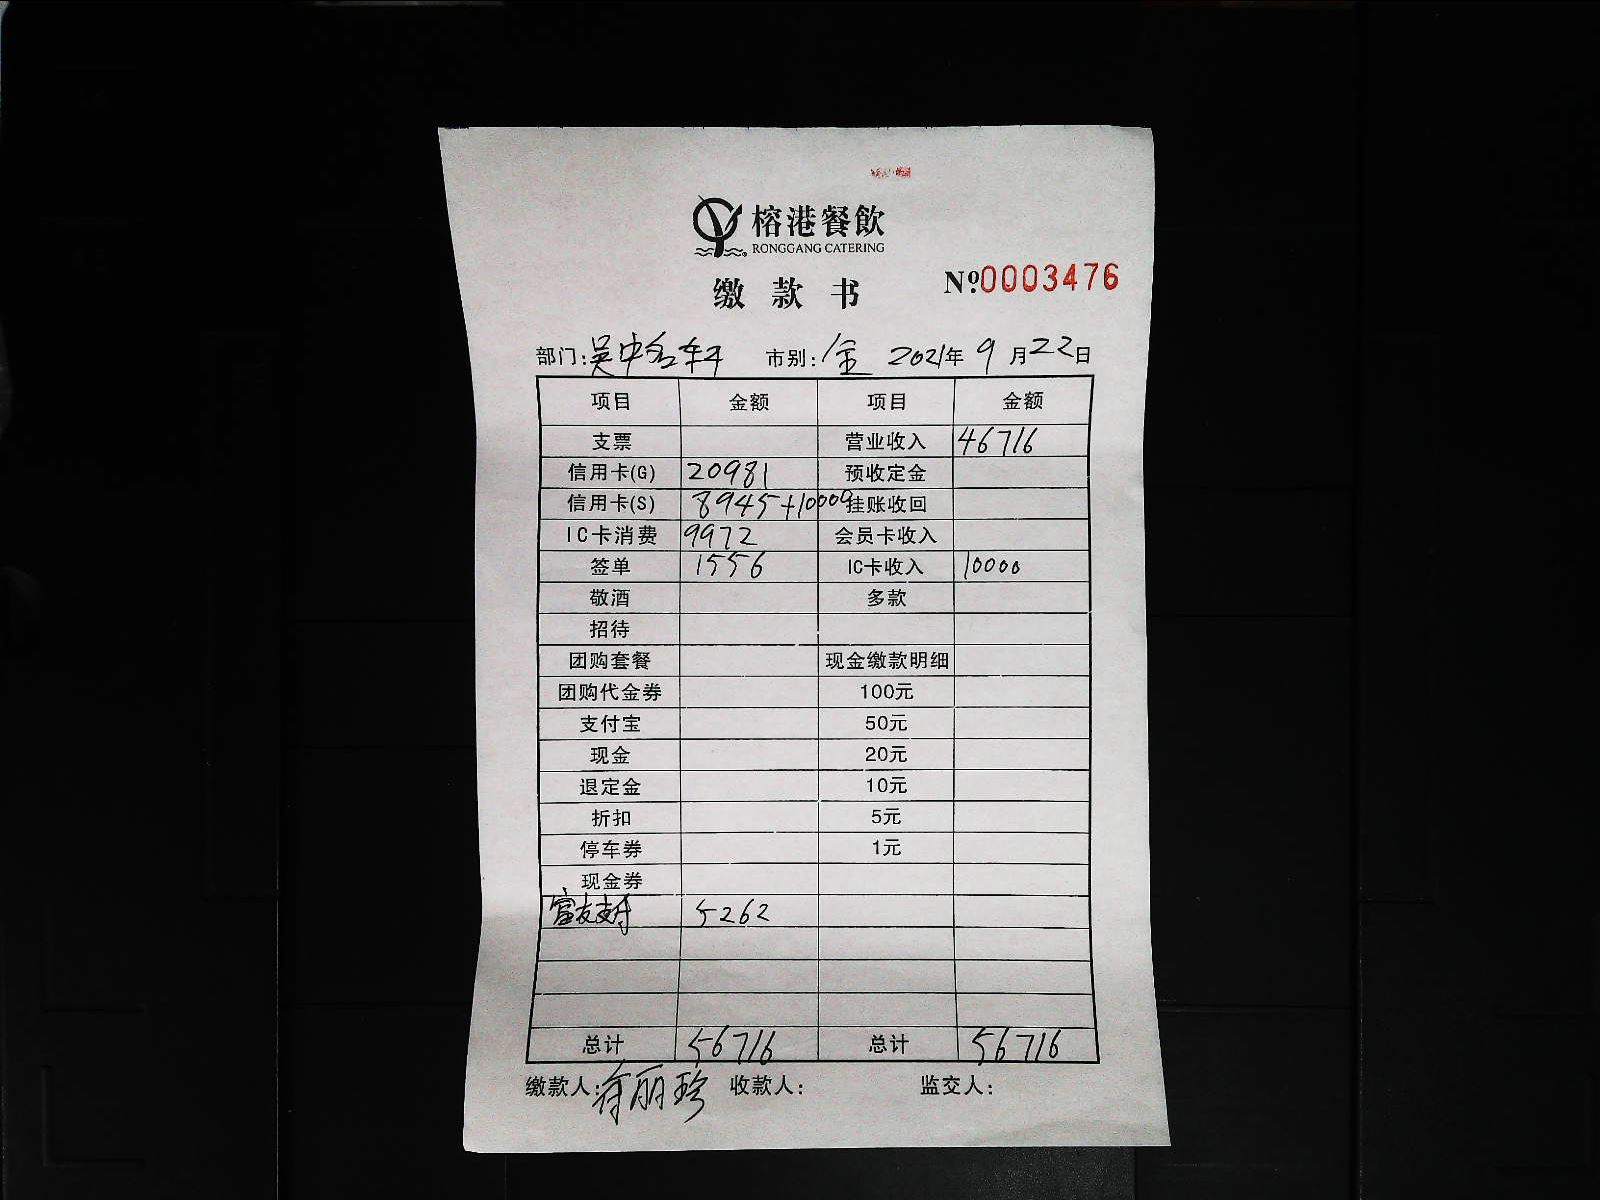 榕港餐飲
RONGGANG CATERING
缴款书
№0003476
部门:吴中名轩 市别:全 2021年9月22日
项目 金额 项目 金额
支票 营业收入 46716
信用卡(G) 20981 预收定金
信用卡(S) 8945+10000 挂账收回
IC卡消费 9972 会员卡收入
签单 1556 IC卡收入 10000
敬酒 多款
招待
团购套餐 现金缴款明细
团购代金券 100元
支付宝 50元
现金 20元
退定金 10元
折扣 5元
停车券 1元
现金券
富友支付 5262
总计 56716 总计 56716
缴款人:徐丽珍 收款人: 监交人: